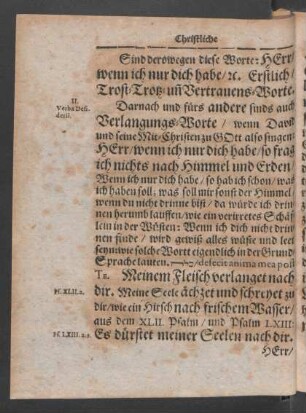 Christliche
Sind derowegen diese Worte: HErr/
wenn ich nur dich habe/ ⁊c. Erstlich/
Trost-Trotz- uñ Vertrauens-Worte.
II.
Verba Desi-
derii.
Darnach und fürs andere sinds auch
Verlangungs-Worte / wenn David
und seine Mit-Christen zu GOtt also singen:
HErr/ wenn ich nur dich habe/ so frag
ich nichts nach Himmel und Erden/
Wenn ich nur dich habe / so hab ich schon/ was
ich haben soll: was soll mir sonst der Himmel/
wenn du nicht drinne bist/ da würde ich drin-
nen herumb lauffen/ wie ein verirretes Schäf-
lein in der Wüsten: Wenn ich dich nicht drin-
nen finde / wird gewiß alles wüste und leer
seyn: wie solche Wort eigendlich in der Grund-
Sprache lauten. defecit anima mea post
Te. Meinem Fleisch verlanget nach
Ps. XLII. 2.
dir. Meine Seele ächzet und schreyet zu
dir/ wie ein Hirsch nach frischem Wasser/
aus dem XLII. Psalm/ und Psalm LXIII.
Ps. LXIII. 2.
Es dürstet meiner Seelen nach dir.
HErr/